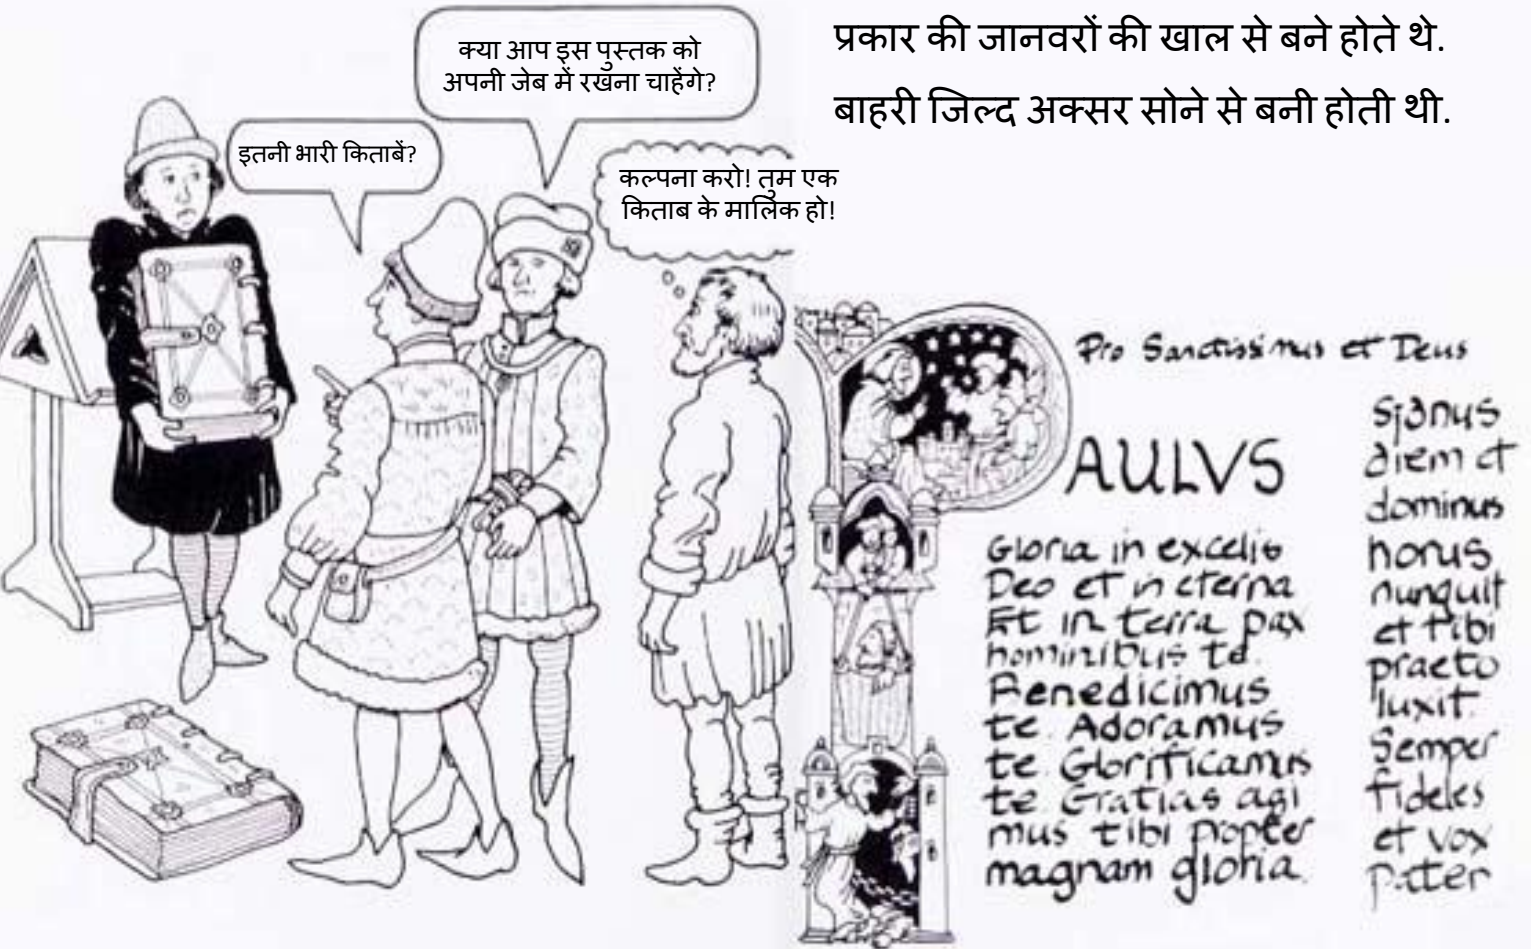 प्रकार की जानवरों की खाल से बने होते थे.
बाहरी जिल्द अक्सर सोने से बनी होती थी.
क्या आप इस पुस्तक को
अपनी जेब में रखना चाहेंगे?
इतनी भारी किताबें?
कल्पना करो! तुम एक
किताब के मालिक हो!
Pro Sanctissimus et Deus
PAULVS
Gloria in excelis
Deo et in eterna
Et in terra pax
hominibus te.
Benedicimus
te. Adoramus
te. Glorificamus
te. Gratias agi
mus tibi propter
magnam gloria.
diem et
dominus
horus
nunquit
et tibi
praeto
luxit.
Semper
fideles
et vox